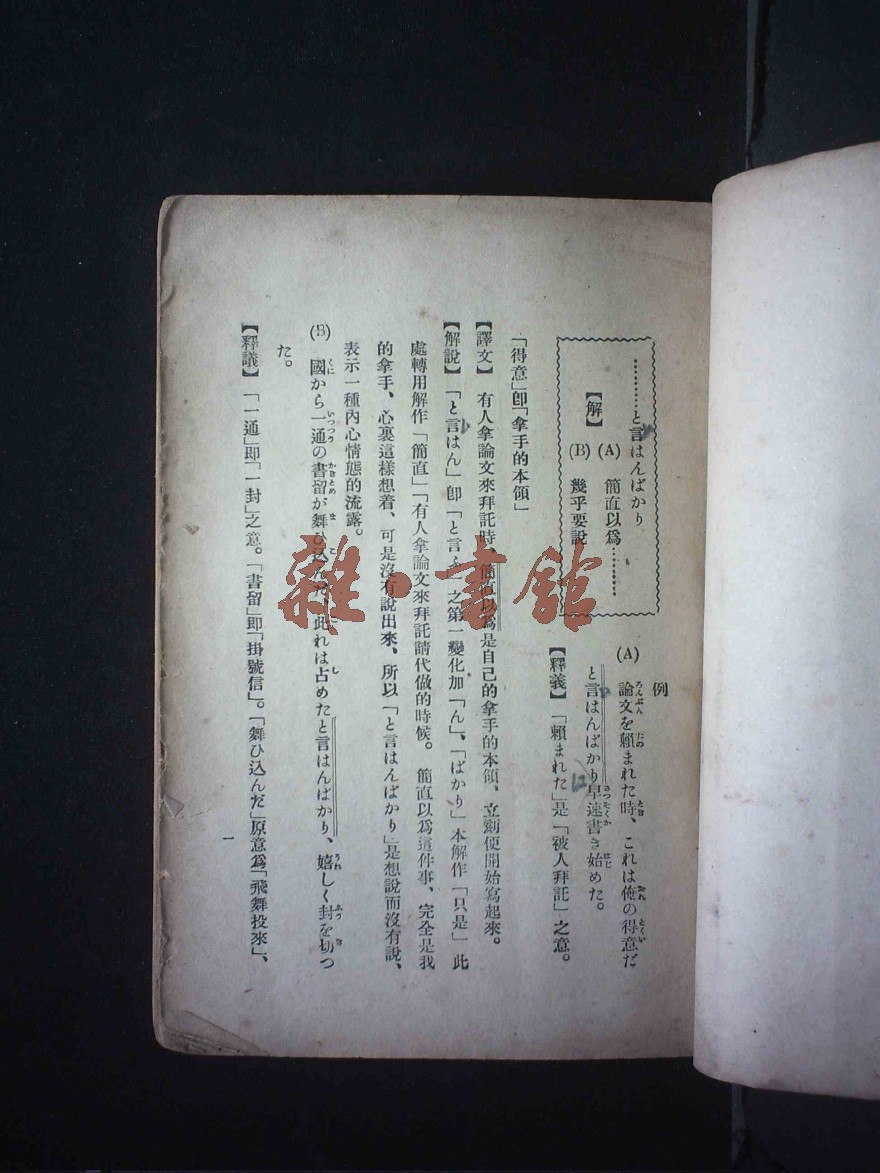 …………と言はんばかり
【解】
(A) 簡直以爲…………
(B) 幾乎要說
例
(A) 論文を賴まれた時、これは俺の得意だ
と言はんばかり早速書き始めた。
【釋義】 「賴まれた」是「被人拜託」之意。
「得意」卽「拿手的本領」
【譯文】 有人拿論文來拜託時、簡直以爲是自己的拿手的本領、立刻便開始寫起來。
【解說】 「と言はん」卽「と言ふ」之第一變化加「ん」、「ばかり」本解作「只是」此
處轉用解作「簡直」「有人拿論文來拜託請代做的時候。 簡直以爲這件事、完全是我
的拿手、心裏這樣想着、可是沒有說出來、所以「と言はんばかり」是想說而沒有說、
表示一種內心情態的流露。
(B) 國から一通の書留が舞ひ込んだ、此れは占めたと言はんばかり、嬉しく封を切つ
た。
【釋議】 「一通」卽「一封」之意。「書留」卽「掛號信」。「舞ひ込んだ」原意爲「飛舞投來」、
一
雜·書館